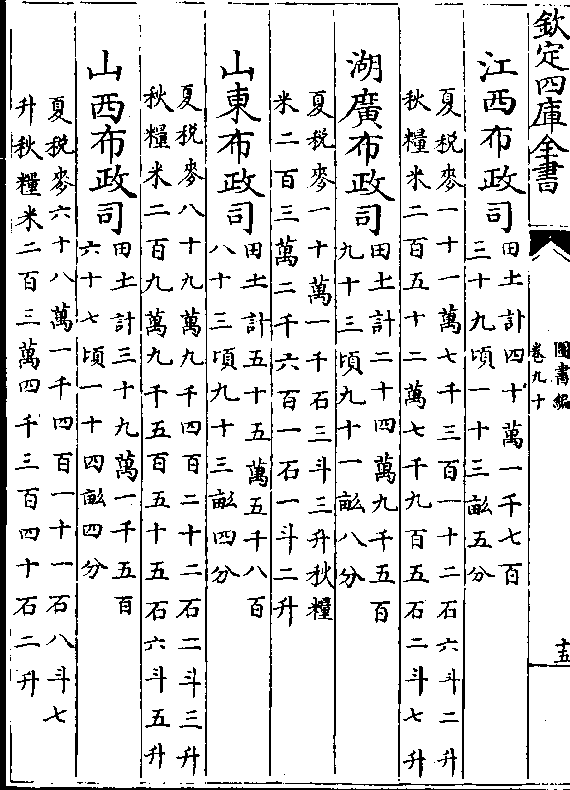 欽定四庫全書
圖書編
卷九十
十五
江西布政司
田土計四十萬一千七百
三十九頃一十三畝五分
夏稅麥一十一萬七千三百一十二石六斗二升
秋糧米二百五十二萬七千九百五石二斗七升
湖廣布政司
田土計二十四萬九千五百
九十三頃九十一畝八分
夏稅麥一十萬一千石三斗三升秋糧
米二百三萬二千六百一石一斗二升
山東布政司
田土計五十五萬五千八百
八十三頃九十三畝四分
夏稅麥八十九萬九千四百二十二石二斗三升
秋糧米二百九萬九千五百五十五石六斗五升
山西布政司
田土計三十九萬一千五百
六十七頃一十四畝四分
夏稅麥六十八萬一千四百一十一石八斗七
升秋糧米二百三萬四千三百四十石二升